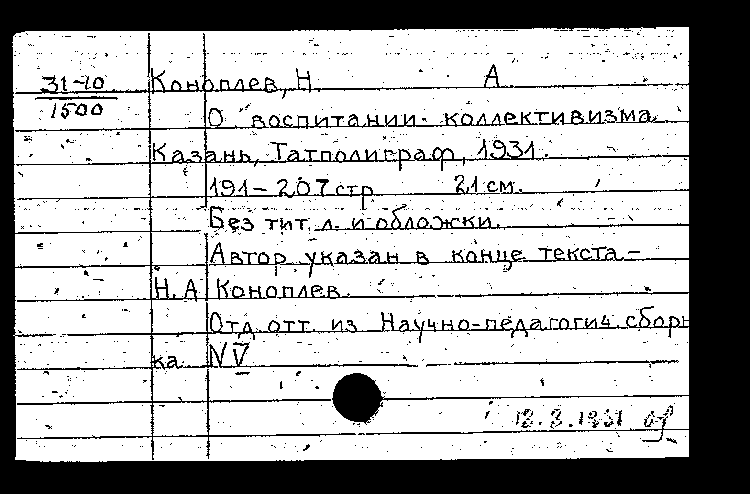 31-10
1500
Коноплев, Н. А
О воспитании коллективизма.
Казань, Татполиграф, 1931.
191-207 стр. 21 см.
Без тит. л. и обложки.
Автор указан в конце текста -
Н.А. Коноплев.
Отд. отт. из Научно-педагогич. сборн
ка N V